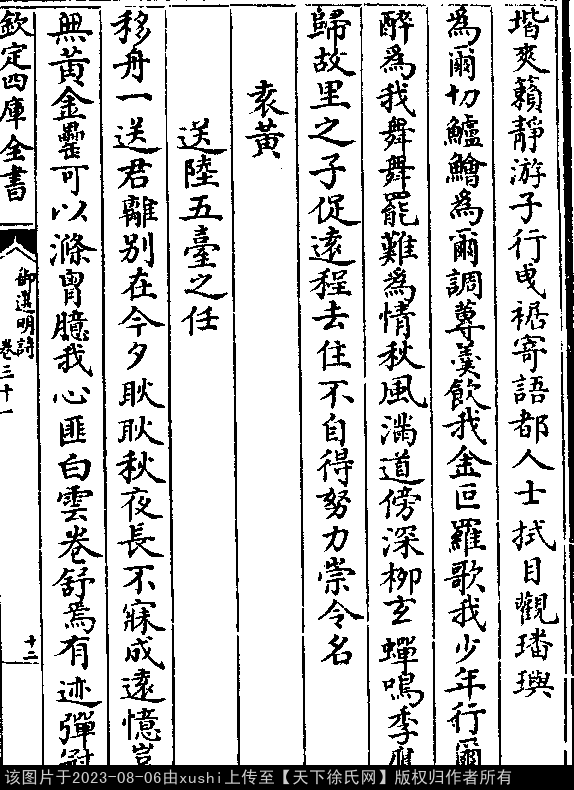 堦爽籟靜游子行曵裾寄語都人士拭目觀璠璵
為爾切鱸鱠為爾調蓴羮飲我金叵羅歌我少年行爾
醉為我舞舞罷難為情秋風滿道傍深栁玄蟬鳴季鷹
歸故里之子促逺程去住不自得努力崇令名
袁黃
送陸五臺之任
移舟一送君離别在今夕耿耿秋夜長不寐成逺憶豈
無黃金罍可以滌胷臆我心匪白雲卷舒焉有迹彈
欽定四庫全書
御選明詩
卷三十一
十二
该图片于2023-08-06由xushi上传至【天下徐氏网】版权归作者所有